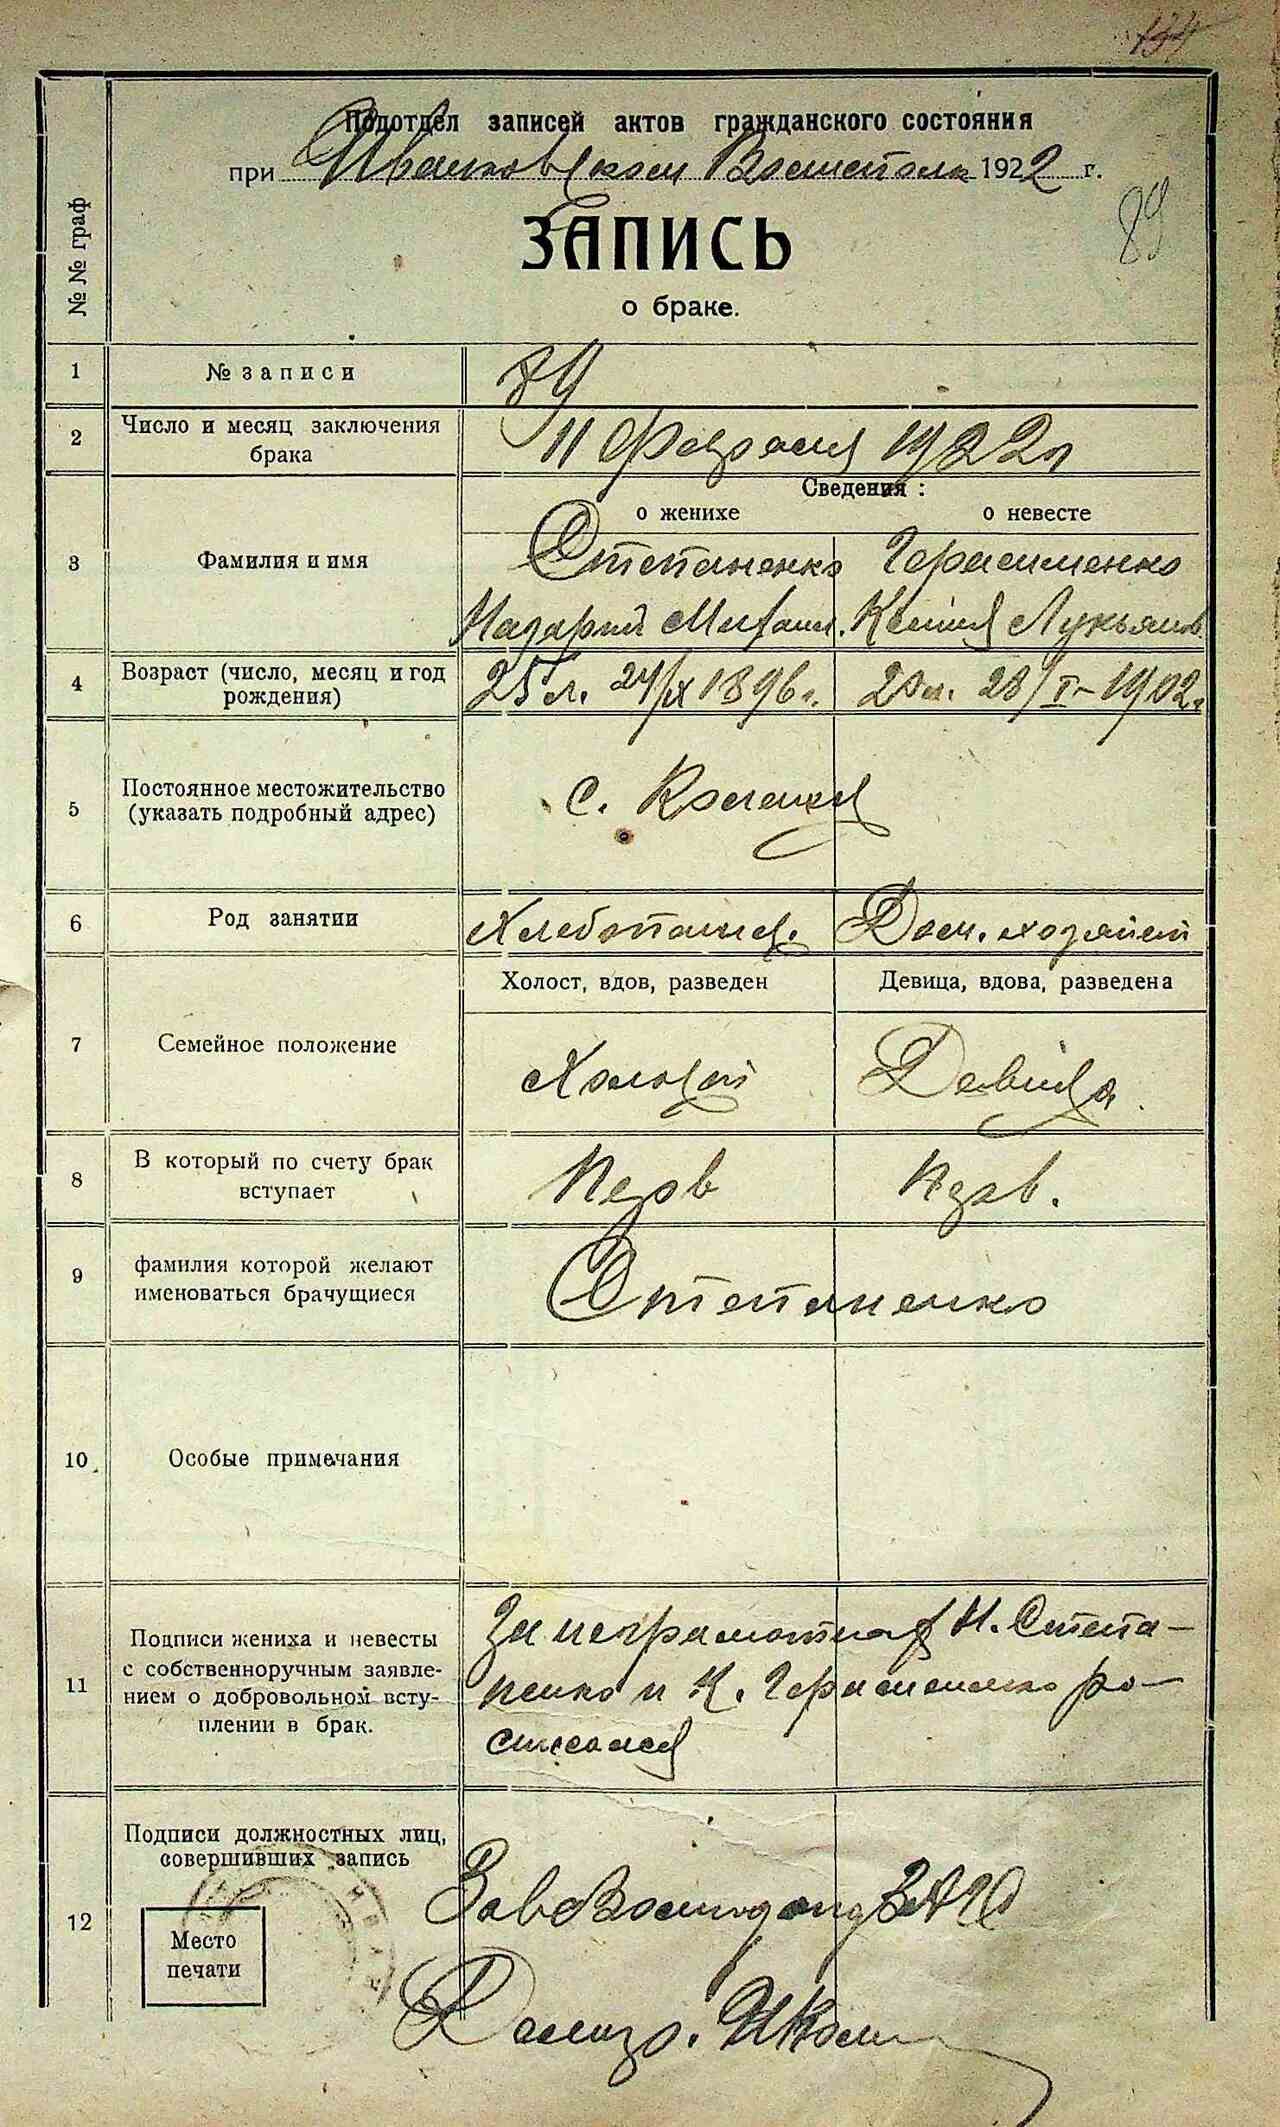 Подотдел записей актов гражданского состояния
при Иванковском Волисполк 1922 г.
89
ЗАПИСЬ
о браке.
№ № граф
1 № записи 89
2 Число и месяц заключения брака 11 Февраля 1922 г
Сведения :
о женихе о невесте
3 Фамилия и имя Степаненко Герасименко
Назарий Михаил. Ксения Лукьянов
4 Возраст (число, месяц и год рождения) 25 л. 24/IX 1896 г. 20 л. 28/I – 1902 г
5 Постоянное местожительство (указать подробный адрес) с.
6 Род занятии Хлебопашец. Дом. хозяйст
Холост, вдов, разведен Девица, вдова, разведена
7 Семейное положение Холостой Девица
8 В который по счету брак вступает Перв Перв.
9 фамилия которой желают именоваться брачущиеся Степаненко
10 Особые примечания
11 Подписи жениха и невесты
с собственноручным заявле-
нием о добровольном всту-
плении в брак.
За неграмотных Н. Степа-
ненко и К. Герасименко ро-
списался
12 Подписи должностных лиц,
совершивших запись
Место
печати
ЗАГС